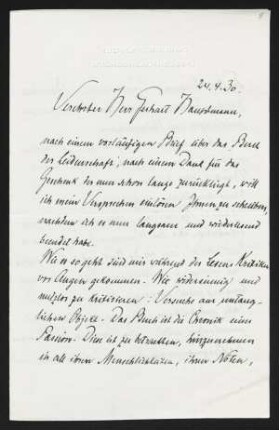 24.4.30.
Verehrter Herr Gerhart Hauptmann,
nach einem vorläufigen Brief über das Buch
der Leidenschaft, nach einem Dank für das
Geschenk der nun schon lange zurückliegt, will
ich mein Versprechen einlösen Ihnen zu schreiben,
nachdem ich es nun langsam und wiederlesend
beendet habe.
Wie es so geht sind mir während des Lesens Kritiken
vor Augen gekommen. Wie widersinnig und
nutzlos zu kritisieren: Versuche am untaug-
lichen Objekt. Das Buch ist die Chronik einer
Passion. Dies ist zu betrachten, hinzunehmen
in all ihren Menschlichkeiten, ihren Nöten,